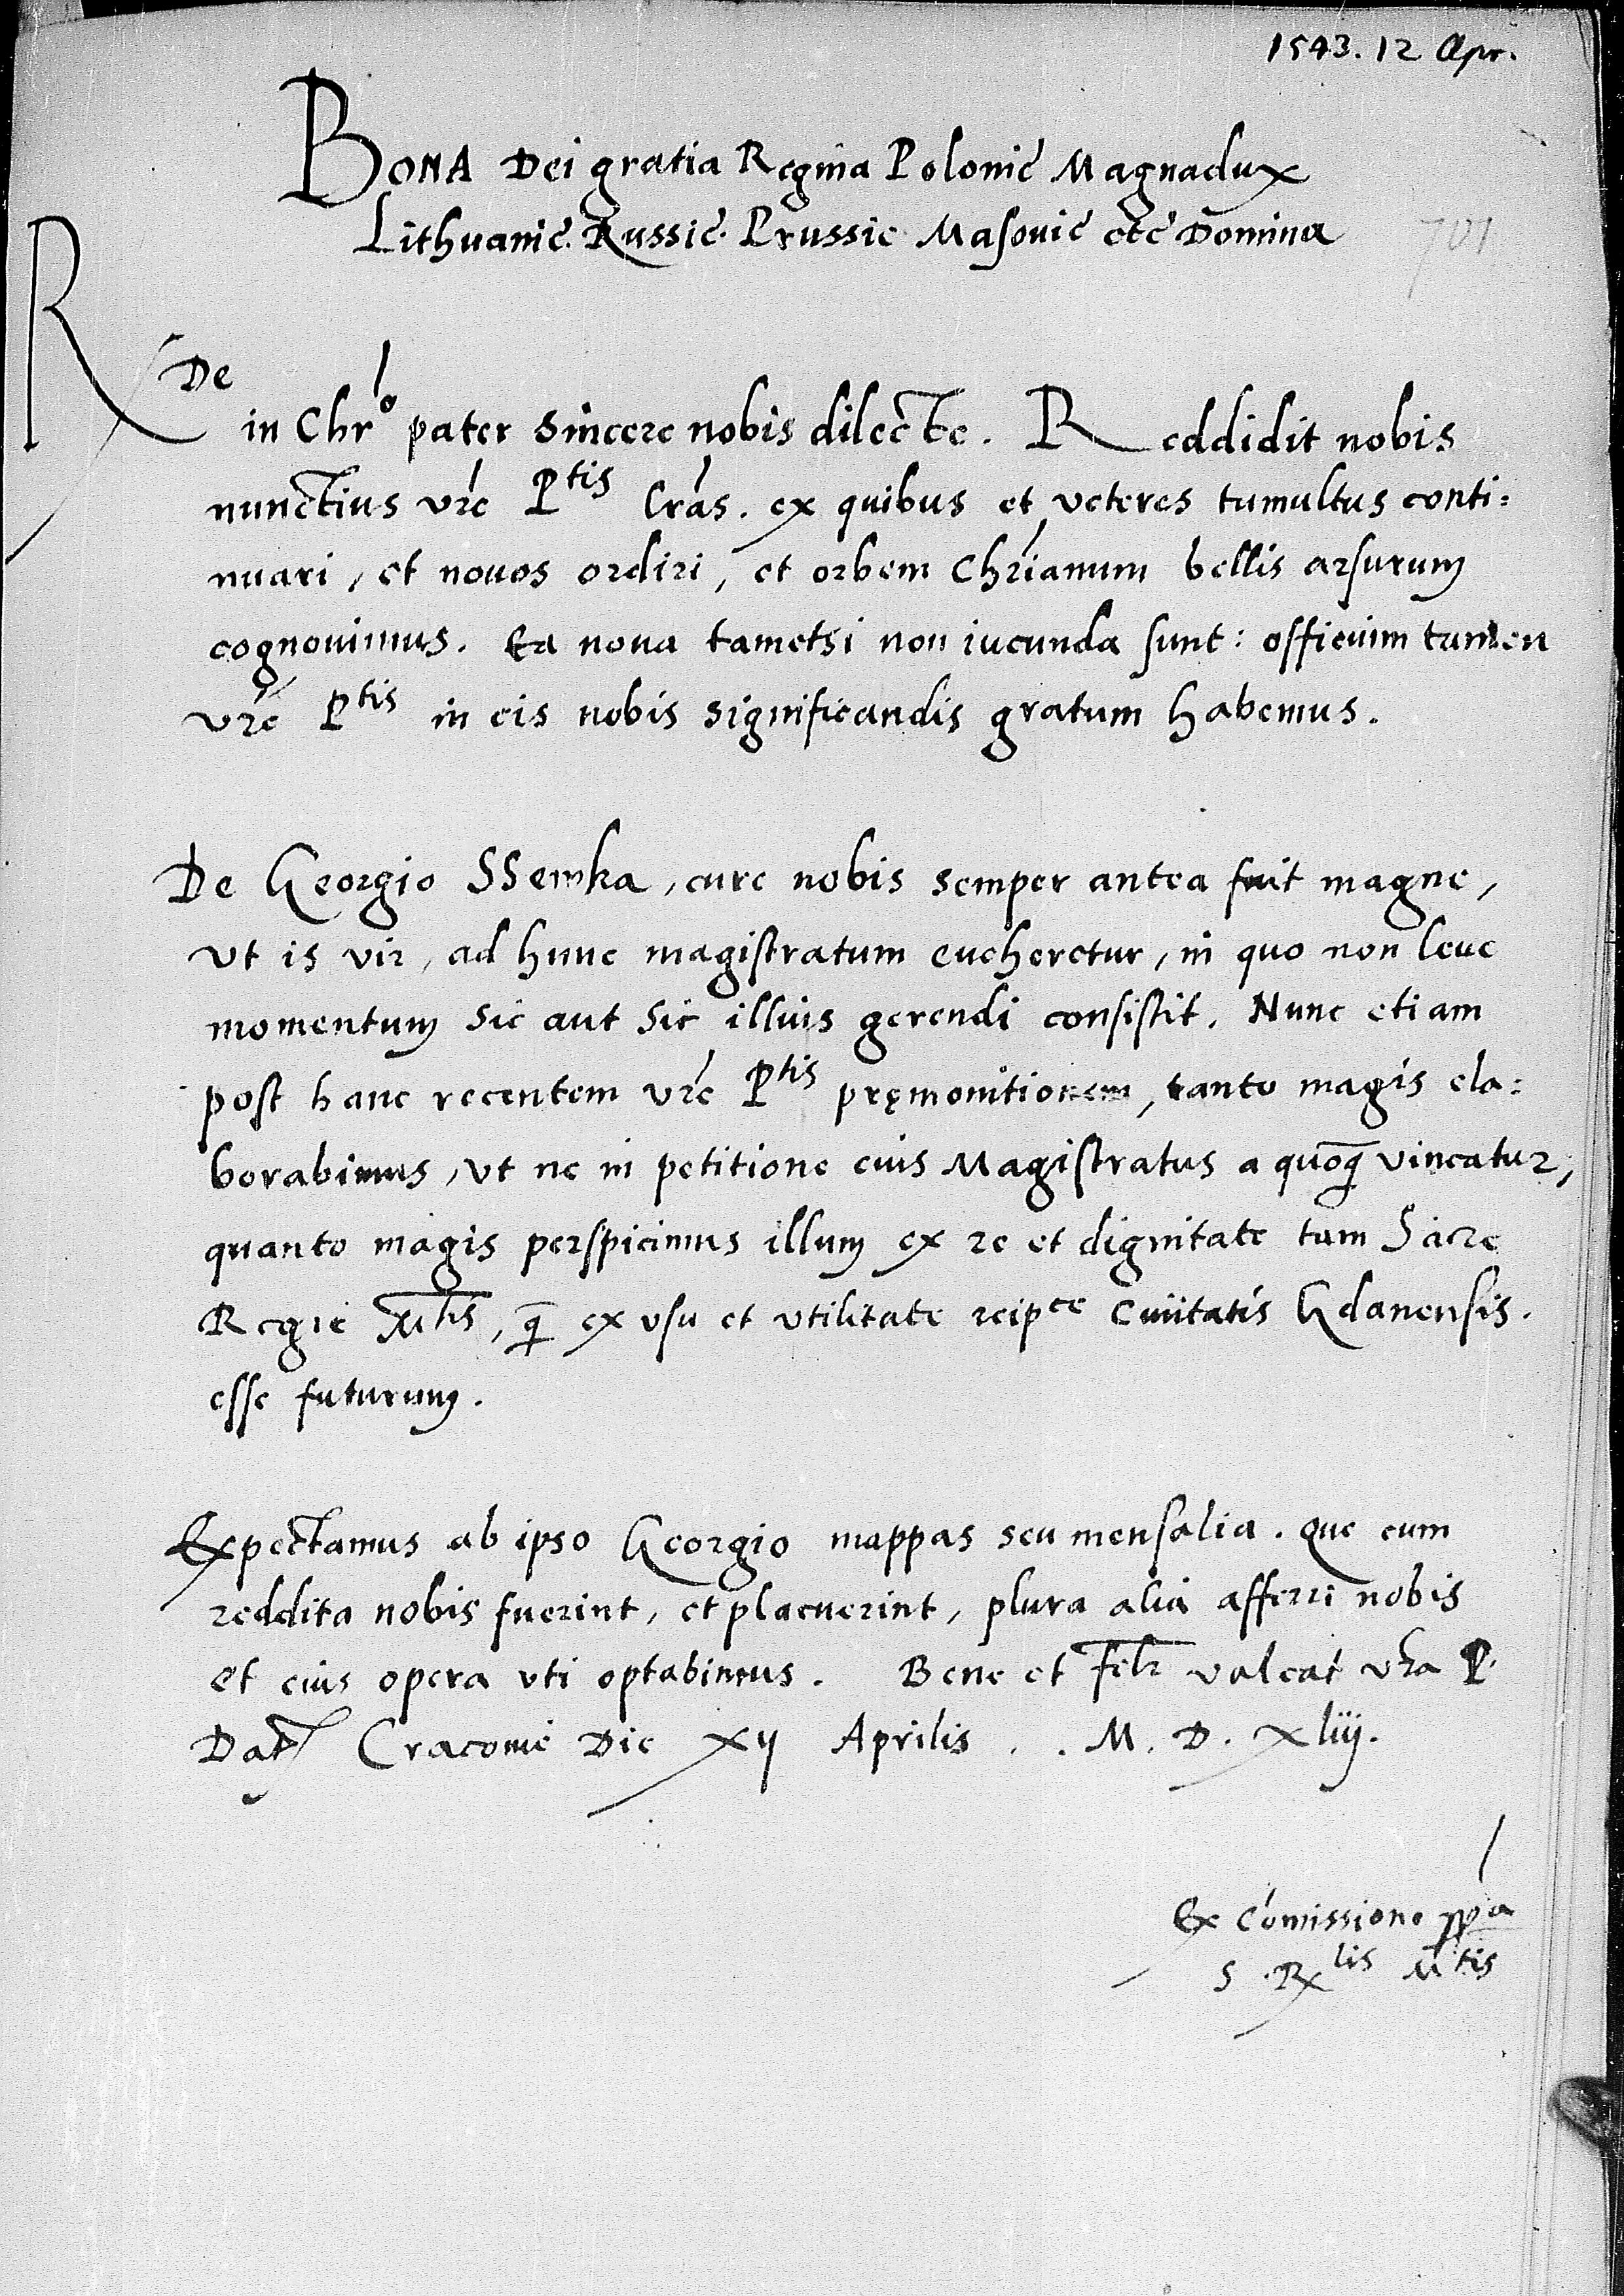 1543. 12 Apr.
BONA Dei gratia Regina Polonie Magnadux
Lithuanie. Russie. Prussie Masovie etc Domina
701
R De
in Chro pater sincere nobis dilecte. Reddidit nobis
nunctius vre Ptis lras. ex quibus et veteres tumultus conti:
nuari, et novos ordiri, et orbem Chrianum bellis arsurum
cognovimus. Ea nova tametsi non iucunda sunt: officium tamen
vre Ptis in eis nobis significandis gratum habemus.
De Georgio SSemka, cure nobis semper antea fuit magne,
ut is vir, ad hunc magistratum eveheretur, in quo non leve
momentum sic aut sic illius gerendi consistit. Nunc etiam
post hanc recentem vre Ptis pręmonitionem, tanto magis ela:
borabimus, ut ne in petitione eius Magistratus a quoq vincatur,
quanto magis perspicimus illum ex re et dignitate tam Sacre
Regie Mtis, q ex usu et utilitate reipce Civitatis Gdanensis.
esse futurum.
Expectamus ab ipso Georgio mappas seu mensalia. Que cum
reddita nobis fuerint, et placuerint, plura alia afferri nobis
et eius opera uti optabimus. Bene et felr valeat vra P.
Dat Cracovie Die xij Aprilis . . M. D. xliij.
Ex Comissione ppa
S. Rlis Mtis